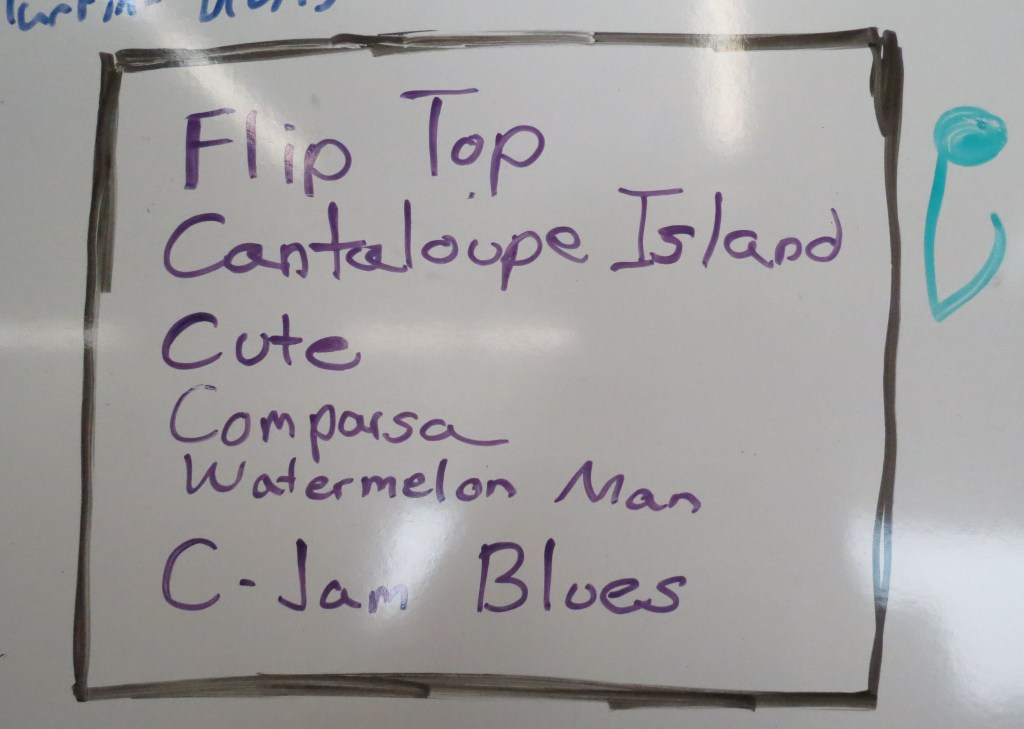 Flip Top
Cantaloupe Island
Cute
Comparsa
Watermelon Man
C-Jam Blues